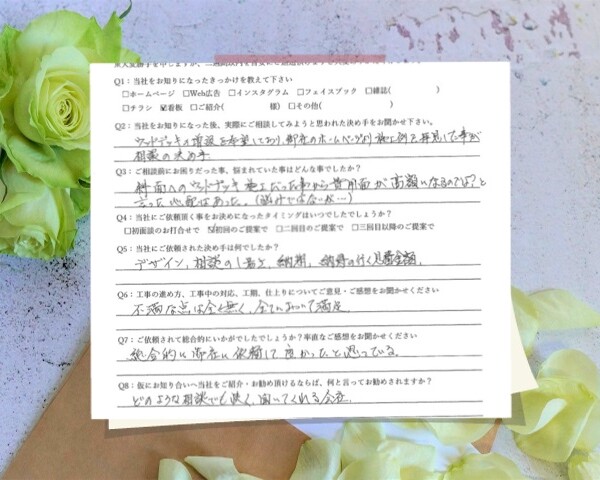 Q1：当社をお知りになったきっかけを教えて下さい
□ホームページ □Web広告 □インスタグラム □フェイスブック □雑誌( )
□チラシ ☑看板 □ご紹介( 様) □その他( )
Q2：当社をお知りになった後、実際にご相談してみようと思われた決め手をお聞かせ下さい。
ウッドデッキの増設を希望しており、御社のホームページより施工例を拝見した事が
相談の決め手
Q3：ご相談前にお困りだった事、悩まれていた事はどんな事でしたか？
斜面へのウッドデッキ施工だった事から費用面が高額になるのでは？と
言った心配はあった。
Q4：当社にご依頼頂く事をお決めになったタイミングはいつでしたでしょうか？
□初面談のお打合せで ☑初回のご提案で □二回目のご提案で □三回目以降のご提案で
Q5：当社にご依頼された決め手は何でしたか？
デザイン、相談の し易さ、納期、納得の行く見積金額。
Q6：工事の進め方、工事中の対応、工期、仕上りについてご意見・ご感想をお聞かせください
不満な点は全く無く、全てにおいて満足。
Q7：ご依頼されて総合的にいかがでしたでしょうか？率直なご感想をお聞かせください
総合的に御社に依頼して良かったと思っている。
Q8：仮にお知り合いへ当社をご紹介・お勧め頂けるならば、何と言ってお勧めされますか？
どのような相談でも快く、聞いてくれる会社。